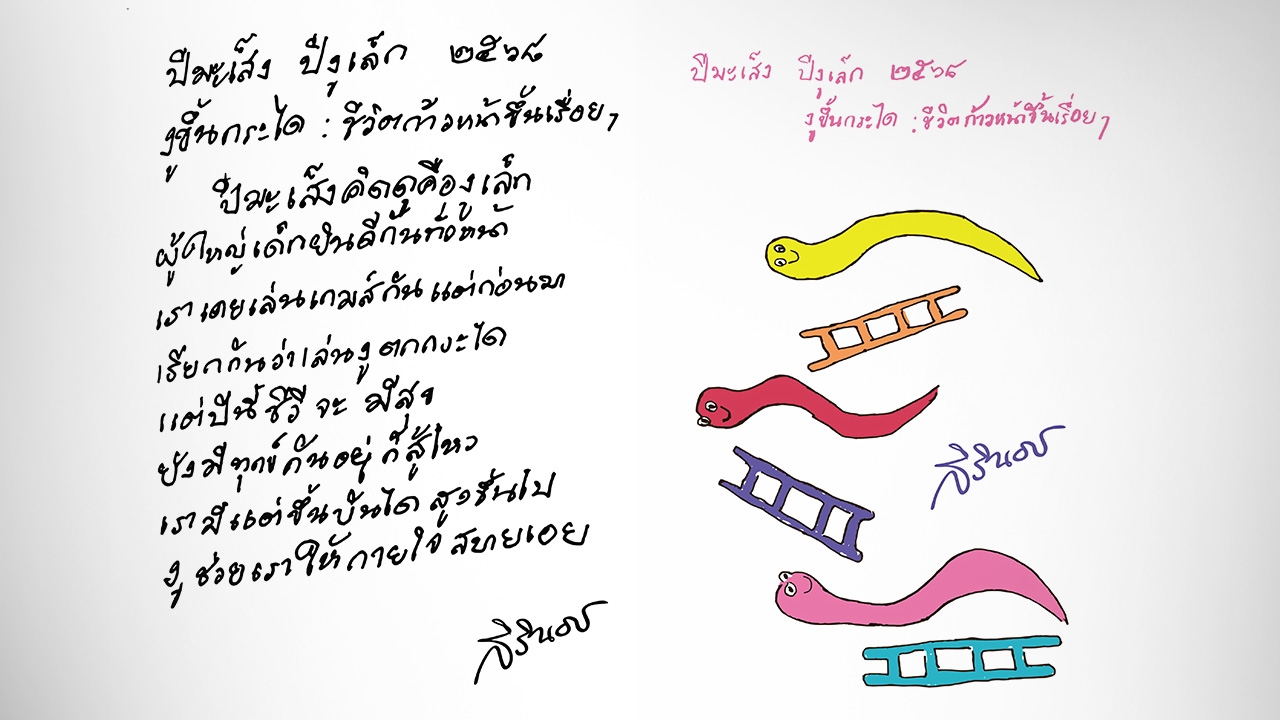 ปีมะเส็ง ปีงูเล็ก ๒๕๖๘
งูขึ้นกระได : ชีวิตก้าวหน้าขึ้นเรื่อยๆ
ปีมะเส็งคิดดูคืองูเล็ก
ผู้ใหญ่เด็กยินดีกันทั่วหน้า
เราเคยเล่นเกมส์กันแต่ก่อนมา
เรียกกันว่าเล่นงูตกกระได
แต่ปีนี้ชีวีจะ มีสุข
ยังมีทุกข์กันอยู่ก็สู้ไหว
เรามีแต่ขึ้นบันได สูงขึ้นไป
งูช่วยเราให้กายใจ สบายเอย
สิรินธร
ปีมะเส็ง ปีงูเล็ก ๒๕๖๘
งูขึ้นกระได : ชีวิตก้าวหน้าขึ้นเรื่อยๆ
สิรินธร